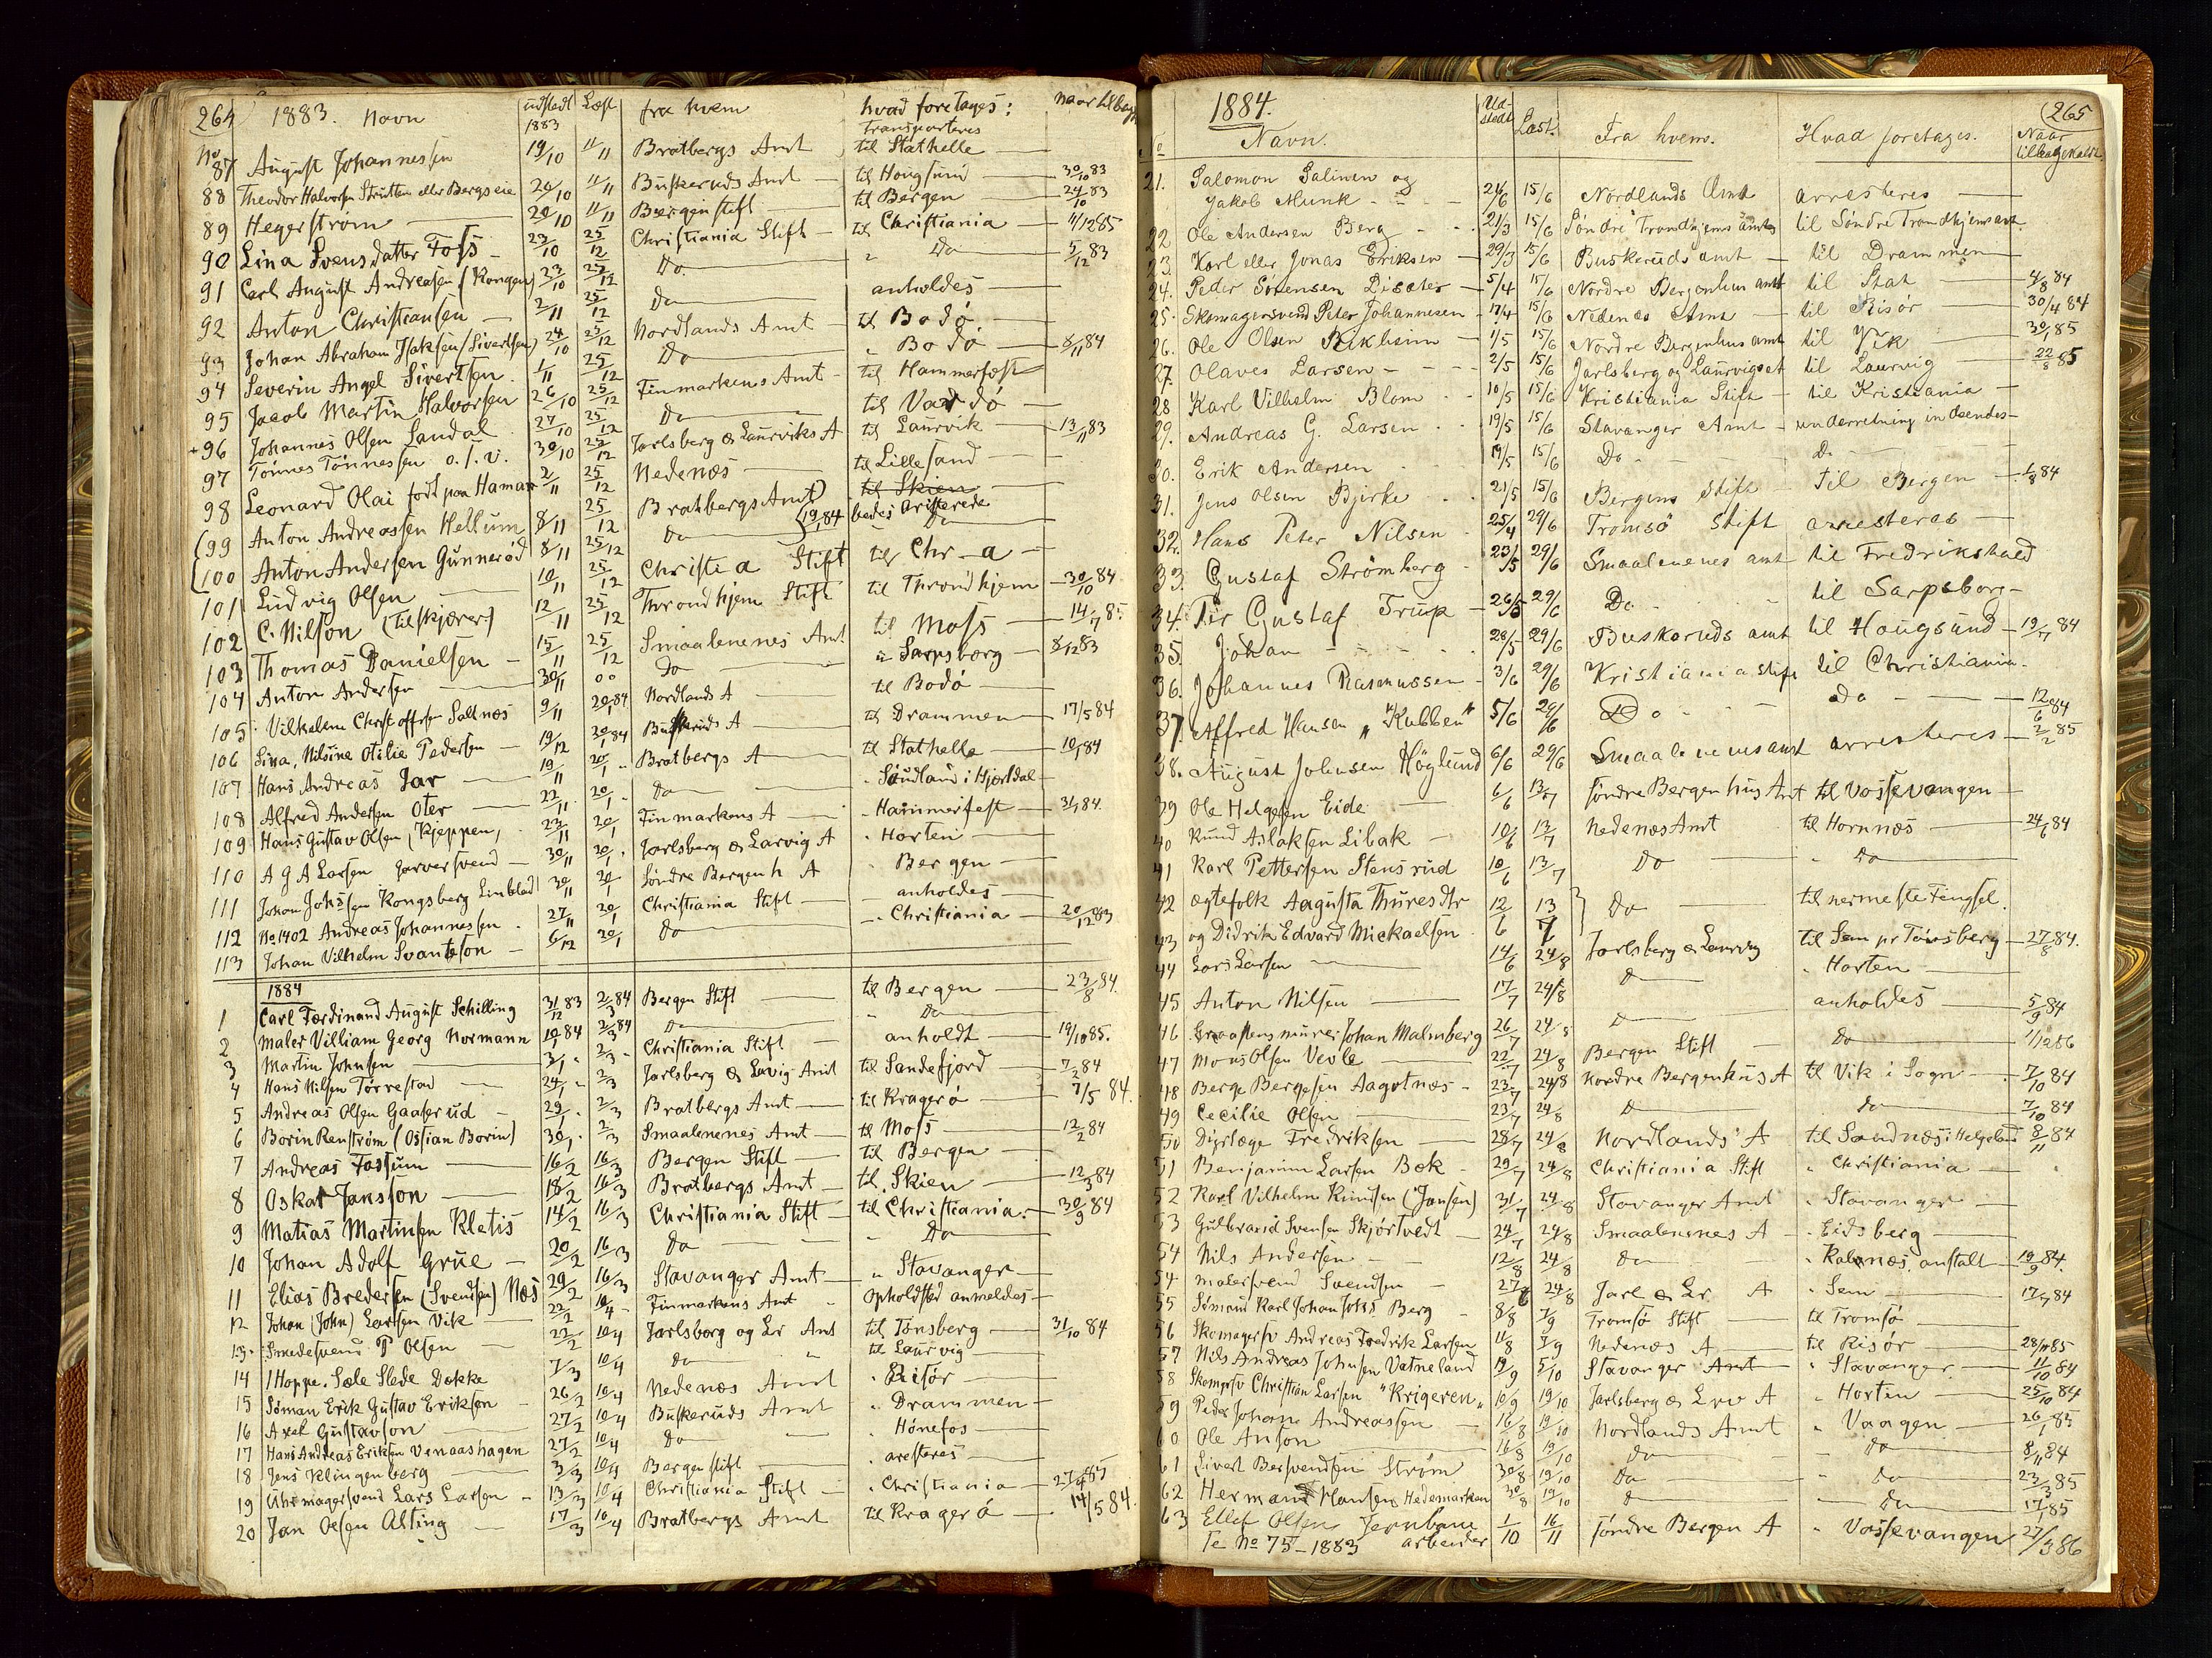 264 1883. Navn udstedt Læst fra hvem hvad foretages: naar tilbag
1883 Transporteres
No 87 August Johannessen 19/10 11/11 Bratbergs Amt til Stathelle
88 Theodor Halvorsen eller Bergseie 20/10 11/11 Buskeruds Amt til Hougsund 30/10 83
89 Hegerstrøm 20/10 11/11 Bergen stift til Bergen 24/10 83
90 Lina Svensdatter Foss 23/10 25/12 Christiania Stift til Christiania 4/12 85
91 Carl August Andreasen (Kongen) 23/10 25/12 Do " Do 5/12 83
92 Anton Christiansen 2/11 25/12 Do anholdes
93 Johan Abraham Isaksen (Sivertsen) 24/10 25/12 Nordlands Amt til Bodø
94 Severin Angel Sivertsen 1/11 25/12 Do " Bodø 8/11 84
95 Jacob Martin Halvorsen 26/10 25/12 Finmarkens Amt til Hammerfest
+96 Johannes Olsen Landal 27/10 25/12 Do til Vardø
97 Tønnes Tønnessen o.s.v. 30/10 25/12 Jarlsberg & Laurviks A til Laurvik 13/11 83
98 Leonard Olai født paa Hamar 2/11 25/12 Nedenæs til Lillesand
99 Anton Andreassen Hellum 8/11 25/12 Bratbergs Amt til Skien
19/1 84 bedes aristerede
100 Anton Andersen Gunnerød 8/11 25/12 Do Do
101 Ludvig Olsen 10/11 25/12 Christi a Stift til Chr-a
102 C. Nilson (Tilskjærer) 12/11 25/12 Throndhjem Stift til Throndhjem 30/10 84
103 Thomas Danielsen 15/11 25/12 Smaalenenes Amt til Moss 14/7 85
104 Anton Andersen 30/11 00 Do " Sarpsborg 8/12 83
105 Vilhelm Christoffersen Saltnes 9/11 20/1 84 Nordlands A til Bodø
106 Lina, Nilsine Otilie Pedersen 19/12 20/1 84 Buskeruds A til Drammen 17/5 84
107 Hans Andreas Jar 19/11 20/1 " Bratbergs A til Stathelle 10/1 84
108 Alfred Andersen Oter 22/11 20/1 Do " Saudland i Hjertdal
109 Hans Gustav Olsen (Kjeppen) 23/11 20/1 Finmarkens A " Hammerfest 31/1 84
110 A G A Larsen, Garversvend 30/11 20/1 Jarlsberg & Larvig A " Horten
111 Johan Johssen Kongsberg Linblad 30/11 20/1 Søndre Bergenh A " Bergen
112 No 1402 Andreas Johannessen 27/11 20/1 Christiania Stift anholdes
113 Johan Vilhelm Svanteson 6/12 20/1 Do " Christiania 20/12 83
1884
1 Carl Ferdinand August Schilling 31/12 83 2/3 84 Bergen Stift til Bergen 23/8 84.
2 Maler Villiam Georg Normann 10/1 84 2/3 84 Do " Do
3 Martin Johnsen 3/1 " 2/3 " Christiania Stift anholdt 19/10 85.
4 Hans Nilsen Tørrestad 24/1 " 2/3 Jarlsberg & Lavig Amt til Sandefjord 7/2 84
5 Andreas Olsen Gaaserud 29/1 " 2/3 Bratbergs Amt til Kragerø 7/5 84.
6 Borin Renstrøm (Ossian Borin) 30/1 " 2/3 Smaalenenes Amt til Moss 12/2 84
7 Andreas Fossum 16/2 16/3 Bergen Stift til Bergen
8 Oskar Jansson 18/2 16/3 Bratbergs Amt til Skien 12/3 84
9 Matias Martinsen Kletis 14/2 16/3 Christiania Stift til Christiania 30/9 84
10 Johan Adolf Grue 20/2 16/3 Do " Do
11 Elias Bredersen (Svendsen) Næs 29/2 16/3 Stavanger Amt " Stavanger
12 Johan (John) Larsen Vik 22/2 10/4 Finmarkens Amt Opholdsted anmeldes
13. Smedesvend P Olsen 22/2 10/4 Jarlsberg og Lr Amt til Tønsberg 31/10 84
14 I Hoppe. Sæle Slede Dokke 7/3 10/4 Do " til Laurvig
15 Søman Erik Gustav Eriksen 26/2 10/4 Nedenæs Amt " Risør
16 Axel Gustavson 27/2 10/4 Buskeruds Amt " Drammen
17 Hans Andreas Eriksen Venaashagen 27/2 10/4 Do " Hønefos
18 Jens Klingenberg 3/3 10/4 Bergen stift " aresteres
19 Uhrmagersvend Lars Larsen 13/3 10/4 Christiania Stift " Christiania
20 Jan Olsen Alting 17/3 10/4 Bratbergs Amt til Kragerø 14/5 84.
1884. 265
No Navn. Udstedt Læst. Fra hvem. Hvad foretages. Naar tilbagekaldt.
21. Salomon Salinen og
Jakob Munk 21/6 15/6 Nordlands Amt arresteres
22 Ole Andersen Berg 21/3 15/6 Søndre Trondhjems amt til Søndre Trondhjems amt
23. Karl eller Jonas Eriksen 29/3 15/6 Buskeruds amt til Drammen
24. Peder Sørensen 5/4 15/6 Nordre Bergenhus amt til Stat 4/8 84
25. Skomagersvend Peter Johannesen 17/4 15/6 Nedenes Amt til Risør 30/4 84
26. Ole Olsen 1/5 15/6 Nordre Bergenhus amt til Vik 30/1 85
27. Olaves Larsen 2/5 15/6 Jarlsberg og Laurvigs at til Laurvig 22/8 85
28 Karl Vilhelm Blom 10/5 15/6 Kristiania Stift til Kristiania
29. Andreas G. Larsen 19/5 15/6 Stavanger Amt underretning indsendes
30. Erik Andersen 19/5 15/6 Do Do
31. Jens Olsen Bjirke 21/5 15/6 Bergens Stift Til Bergen 1/8 84
32. Hans Peter Nilsen 25/4 29/6 Tromsø Stift arresteres
33. Gustaf Strömberg 23/5 29/6 Smaalenenes amt til Fredrikshald
34. Per Gustaf Trup 26/5 29/6 Do til Sarpsborg
35. Johan 28/5 29/6 Buskeruds amt til Hougsund 19/7 84
36. Johannes Rasmussen 3/6 29/6 Kristiania stift til Christiania.
37. Alfred Hansen "Kubben" 5/6 29/6 Do Do 12/6 84
38. August Johnsen Höglund 6/6 29/6 Smaalenenes amt arresteres 2/2 85
39 Ole Helgesen Eide 6/6 13/7 Søndre Bergenhus Amt til Vossevangen
40 Knud Aslaksen Libak 10/6 13/7 Nedenæs Amt til Hornnæs 24/6 84
41 Karl Pettersen Stensrud 10/6 13/7 Do " Do
42 ægtefolk Augusta Thuresdtr 12/6 13/7 Do til nermeste Fengsel.
43 og Didrik Edvard Mickaelsen
44 Lars Larsen 14/6 24/8 Jarlsberg & Laurvig til Sem pr Tønsberg 27/8 84.
45 Anton Nilsen 17/7 24/8 Do " Horten
46 Johan Malmberg 26/7 24/8 Do anholdes 5/9 84
47 Mons Olsen Vevle 22/7 24/8 Bergen Stift Do 1/12 86
48 Berge Bergesen Aagotnæs 23/7 24/8 Nordre Bergenhus A til Vik i Sogn 7/10 84
49 Cecilie Olsen 23/7 24/8 Do Do 7/10 84
50 Dyrlæge Fredriksen 28/7 24/8 Nordlands A til Sandnæs i Helgeland 8/11 84
51 Benjamin Larsen Bok 29/7 24/8 Christiania Stift " Christiania
52 Karl Vilhelm Knudsen (Jansen) 31/7 24/8 Stavanger Amt " Stavanger
53 Gulbrand Svensen Skjørtvedt 24/7 24/8 Smaalenenes A " Eidsberg
54 Nils Andersen 12/8 24/8 Do " Kalnæs anstalt 19/9 84.
54 malersvend Svendsen 27/8 24/8 Jarl & Lr A " Sem 17/9 84
55 Sømand Karl Johan Johs Berg 8/8 7/9 Tromsø Stift til Tromsø
56 Skomagersv Andreas Fredrik Larsen 11/8 7/9 Nedenæs A til Risør 28/11 85
57 Nils Andreas Johnsen Vatneland 19/9 5/10 Stavanger Amt " Stavanger 11/10 84
58 Skomgrsv Christian Larsen "Krigeren" 10/9 19/10 Jarlsberg & Lrv A " Horten 25/10 84
59 Peder Johan Andreassen 16/8 19/10 Nordlands Amt " Vaagen 26/1 85
60 Ole Anton 16/8 19/10 Do " Do 8/11 84
61 Sivert Bersvendsen Strøm 30/8 19/10 Do " Do 23/3 85
62 Herman Hansen Hedemarken 30/8 19/10 Do Do 17/1 85
63 Ellef Olsen Jernbane 1/10 16/11 Søndre Bergen A " Vossevangen 27/3 86
Se No 75-1883 arbeider